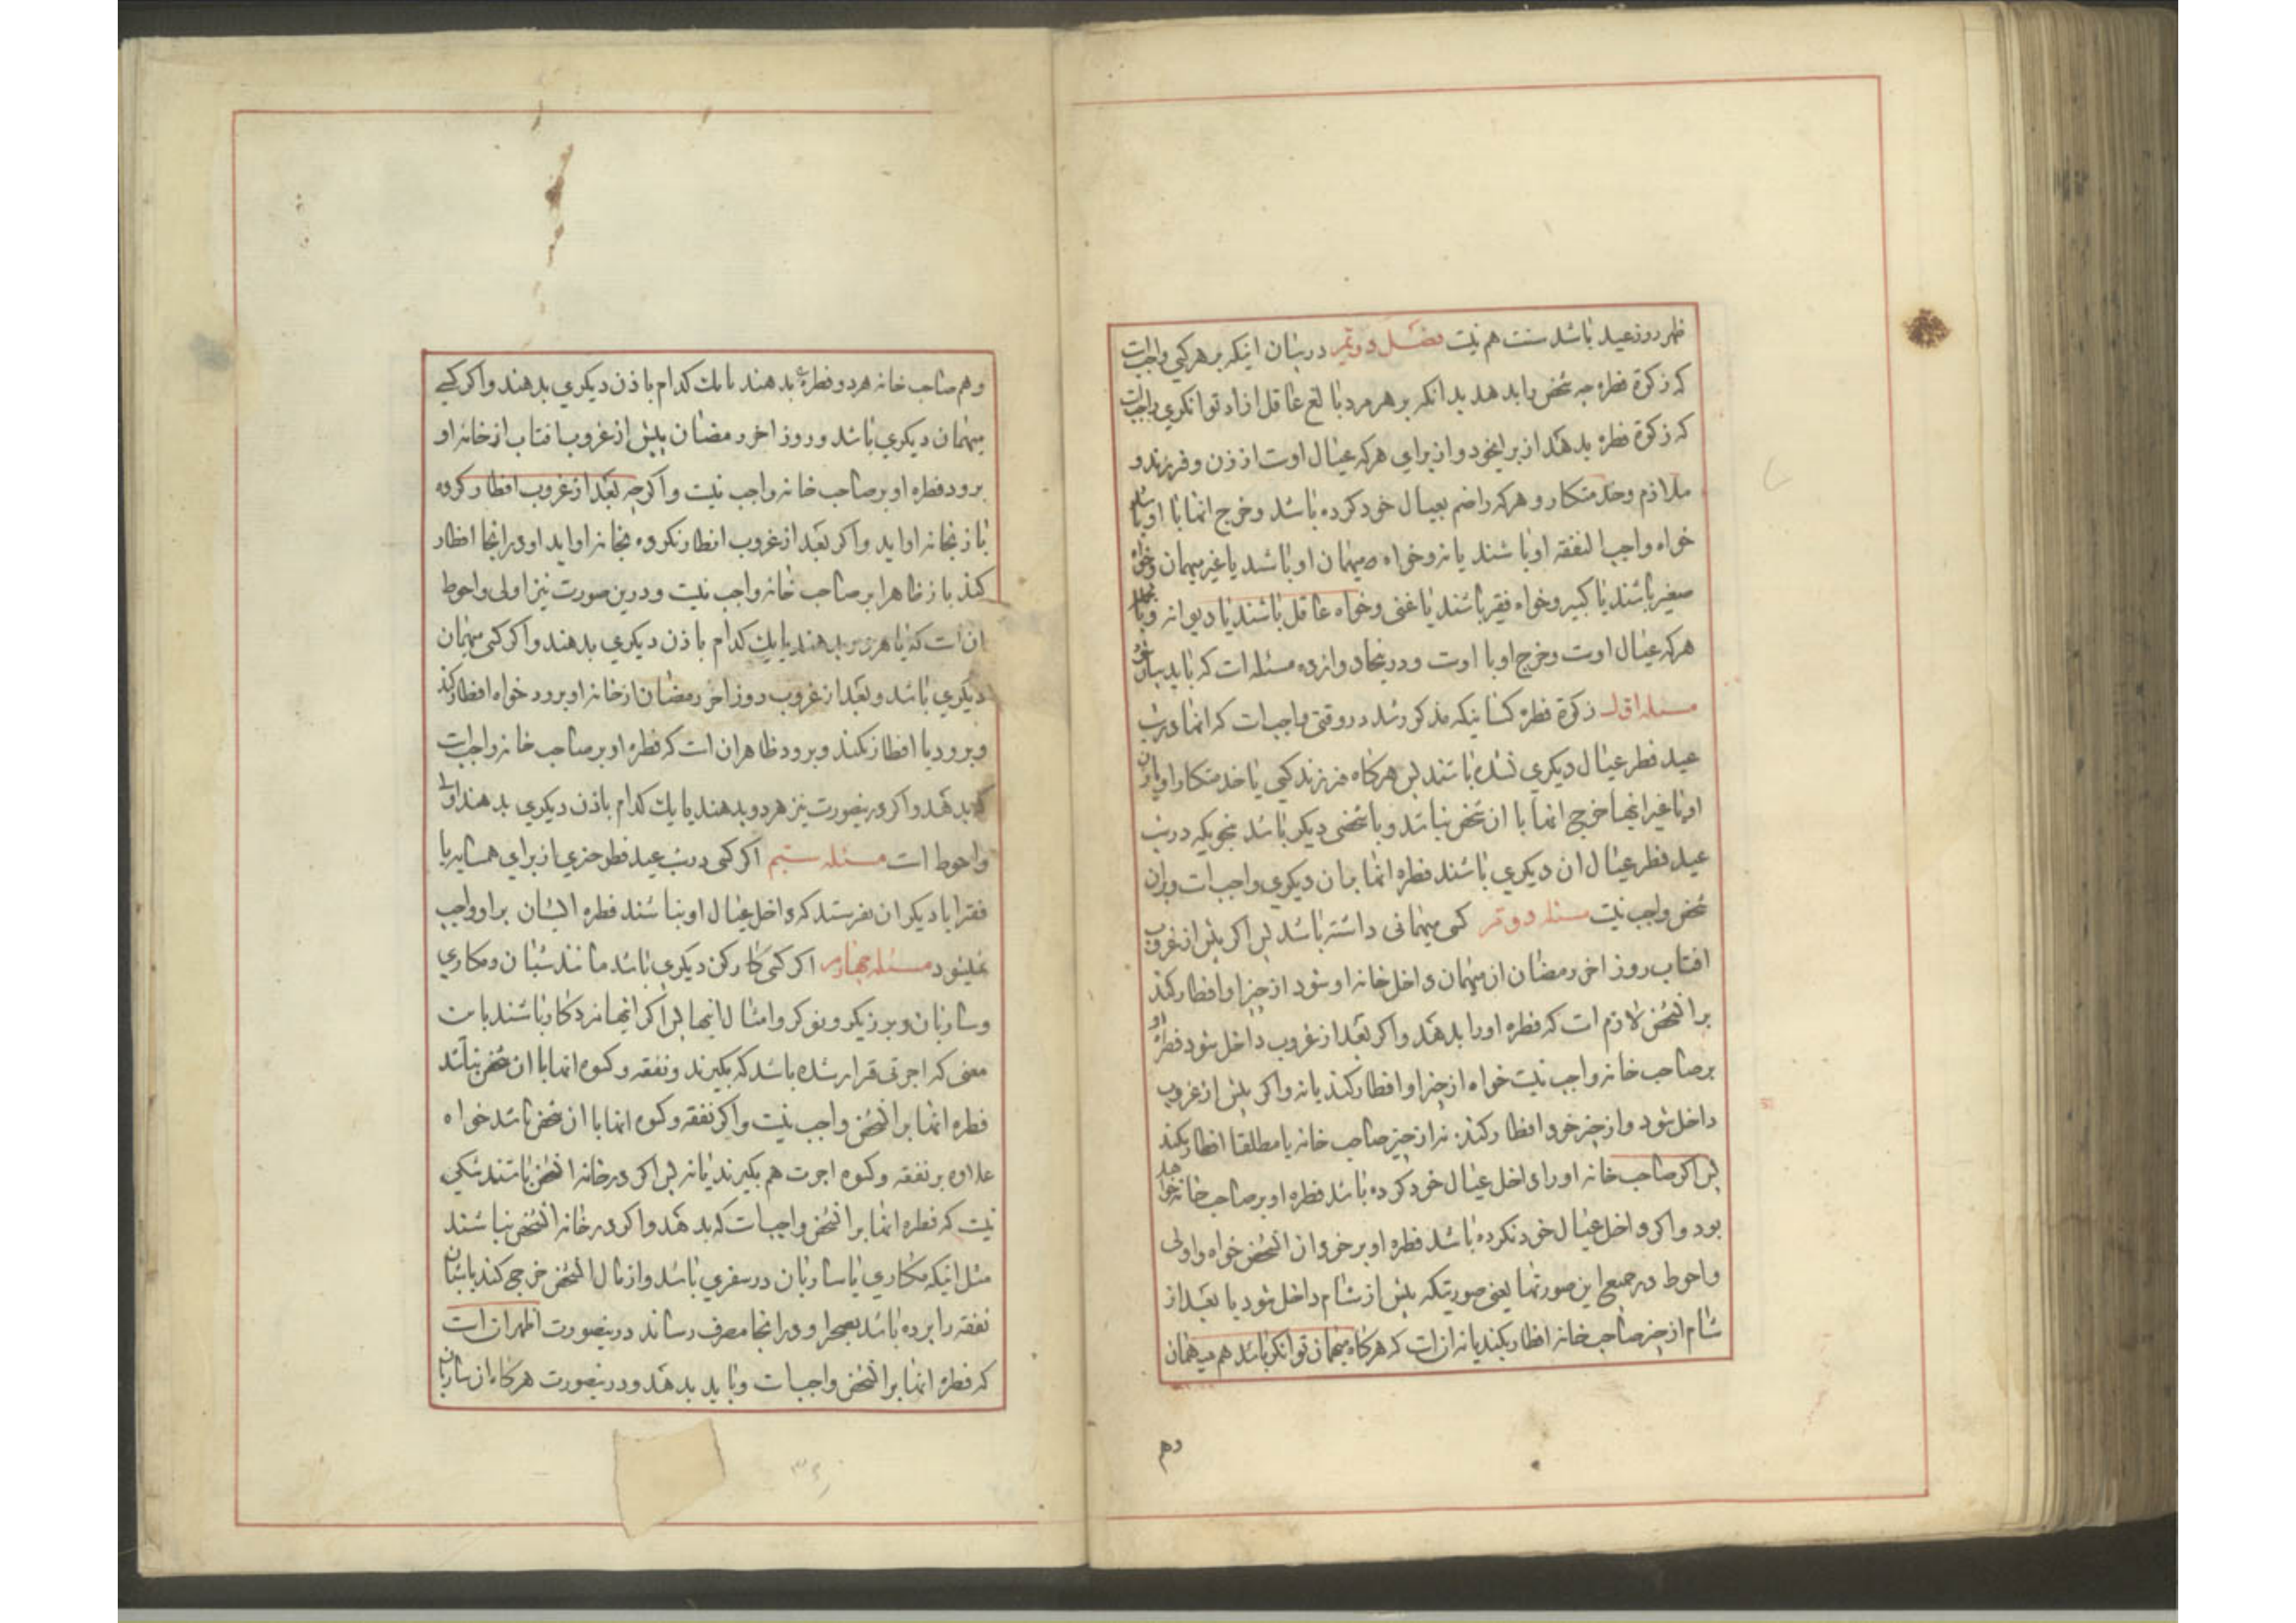 ظهر روز عید باشد سنت هم نیست فصل دویم در بیان اینکه بر هر کی واجبست
که زکوة فطره چه شخص را بدهد بدانکه بر هر مرد بالغ عاقل ازاد توانکری واجبست
که زکوة فطره بدهد از برایخود و از برای هر که عیال اوست از زن و فرزند و
ملازم و خدمتکار و هر که را ضم بعیال خود کرده باشد و خرج انها با او باشد
خواه واجب النفقه او باشند یا نه و خواه میهمان او باشد یا غیر میهمان و خواه
صغیر باشند یا کبیر و خواه فقیر باشند یا غنی و خواه عاقل باشند یا دیوانه
هر که عیال اوست و خرج او با اوست و در اینجا دوازده مسئله است که باید
مسئله اول زکوة فطره کسانیکه مذکور شد در وقتی واجبست که انها در شب
عید فطر عیال دیکری نشده باشند پس هر کاه فرزند کسی یا خدمتکار او یا زن
او یا غیر اینها خرج انها با ان شخص نباشد و با شخصی دیکر باشد بنحویکه در شب
عید فطر عیال ان دیکری باشند فطره انها بر ان دیکری واجبست و بر ان
شخص واجب نیست مسئله دویم کسی میهمانی داشته باشد پس اکر پیش از غروب
افتاب روز اخر رمضان ان میهمان داخل خانه او شود از چیز او افطار کند
بر انشخص لازم است که فطره او را بدهد و اکر بعد از غروب داخل شود فطره او
بر صاحب خانه واجب نیست خواه از چیز او افطار کند یا نه و اکر پیش از غروب
داخل شود و از چیز خود افطار کند نه از چیز صاحب خانه یا مطلقا افطار نکند
پس اکر صاحب خانه او را داخل عیال خود کرده باشد فطره او بر صاحب خانه خواهد
بود و اکر داخل عیال خود نکرده باشد فطره او بر خود ان شخص خواه و اولی
و احوط در جمیع این صورتها یعنی صورتیکه پیش از شام داخل شود یا بعد از
شام از چیز صاحب خانه افطار بکند یا نه انست که هر کاه میهمان توانکر باشد هم میهمان
وهم
وهم صاحب خانه هر دو فطره بدهند یا یك کدام باذن دیکری بدهند و اکر کسی
میهمان دیکری باشد و روز اخر رمضان پیش از غروب افتاب از خانه او
برود فطره او بر صاحب خانه واجب نیست و اکر چه بعد از غروب افطار کرده
باز بخانه او اید و اکر بعد از غروب افطار نکرده بخانه او اید و در انجا افطار
کند باز ظاهرا بر صاحب خانه واجب نیست و درین صورت نیز اولی و احوط
ان است که یا هر دو بدهند یا یك کدام باذن دیکری بدهند و اکر کسی میهمان
دیکری باشد و بعد از غروب روز اخر رمضان از خانه او برود خواه افطار کند
و برود یا افطار نکند و برود ظاهر ان است که فطره او بر صاحب خانه واجبست
که بدهد و اکر درینصورت نیز هر دو بدهند یا یك کدام باذن دیکری بدهند اولی
و احوط است مسئله سیم اکر کسی در شب عید فطر چیزی از برای همسایه یا
فقرا یا دیکران بفرستد که داخل عیال او نباشند فطره ایشان بر او واجب
نمیشود مسئله چهارم اکر کسی کارکن دیکری باشد مانند شبان و مکاری
و ساربان و برزیکر و نوکر و امثال اینها پس اکر اینها مزدکار باشند باین
معنی که اجرتی قرار شده باشد که بکیرند و نفقه و کسوه انها با ان شخص نباشد
فطره انها بر انشخص واجب نیست و اکر نفقه و کسوه انها با ان شخص باشد خواه
علاوه بر نفقه و کسوه اجرت هم بکیرند یا نه پس اکر در خانه انشخص باشند شکی
نیست که فطره انها بر انشخص واجبست که بدهد و اکر در خانه انشخص نباشند
مثل اینکه مکاری یا ساربان در سفری باشد و از مال انشخص خرج کند یا شبان
نفقه را برده باشد بصحرا و در انجا مصرف رساند درینصورت اظهر انست
که فطره انها بر انشخص واجبست و باید بدهد و درینصورت هر کاه ان ساربان